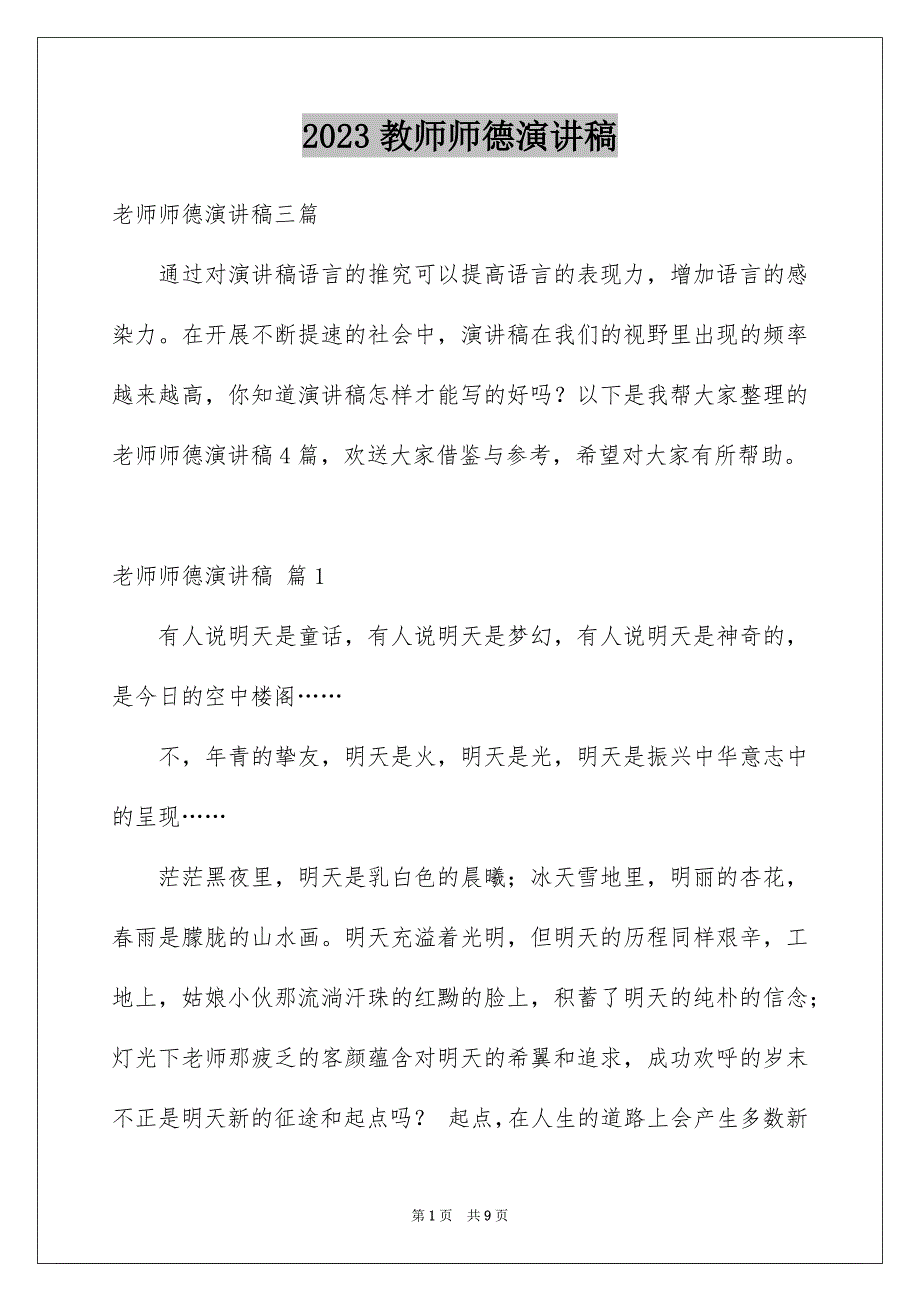 2023教师师德演讲稿
老师师德演讲稿三篇
通过对演讲稿语言的推究可以提高语言的表现力，增加语言的感
染力。在开展不断提速的社会中，演讲稿在我们的视野里出现的频率
越来越高，你知道演讲稿怎样才能写的好吗？以下是我帮大家整理的
老师师德演讲稿4篇，欢送大家借鉴与参考，希望对大家有所帮助。
老师师德演讲稿 篇1
有人说明天是童话，有人说明天是梦幻，有人说明天是神奇的，
是今日的空中楼阁……
不，年青的挚友，明天是火，明天是光，明天是振兴中华意志中
的呈现……
茫茫黑夜里，明天是乳白色的晨曦；冰天雪地里，明丽的杏花，
春雨是朦胧的山水画。明天充溢着光明，但明天的历程同样艰辛，工
地上，姑娘小伙那流淌汗珠的红黝的脸上，积蓄了明天的纯朴的信念；
灯光下老师那疲乏的客颜蕴含对明天的希翼和追求，成功欢呼的岁末
不正是明天新的征途和起点吗？ 起点，在人生的道路上会产生多数新
第1页 共9页